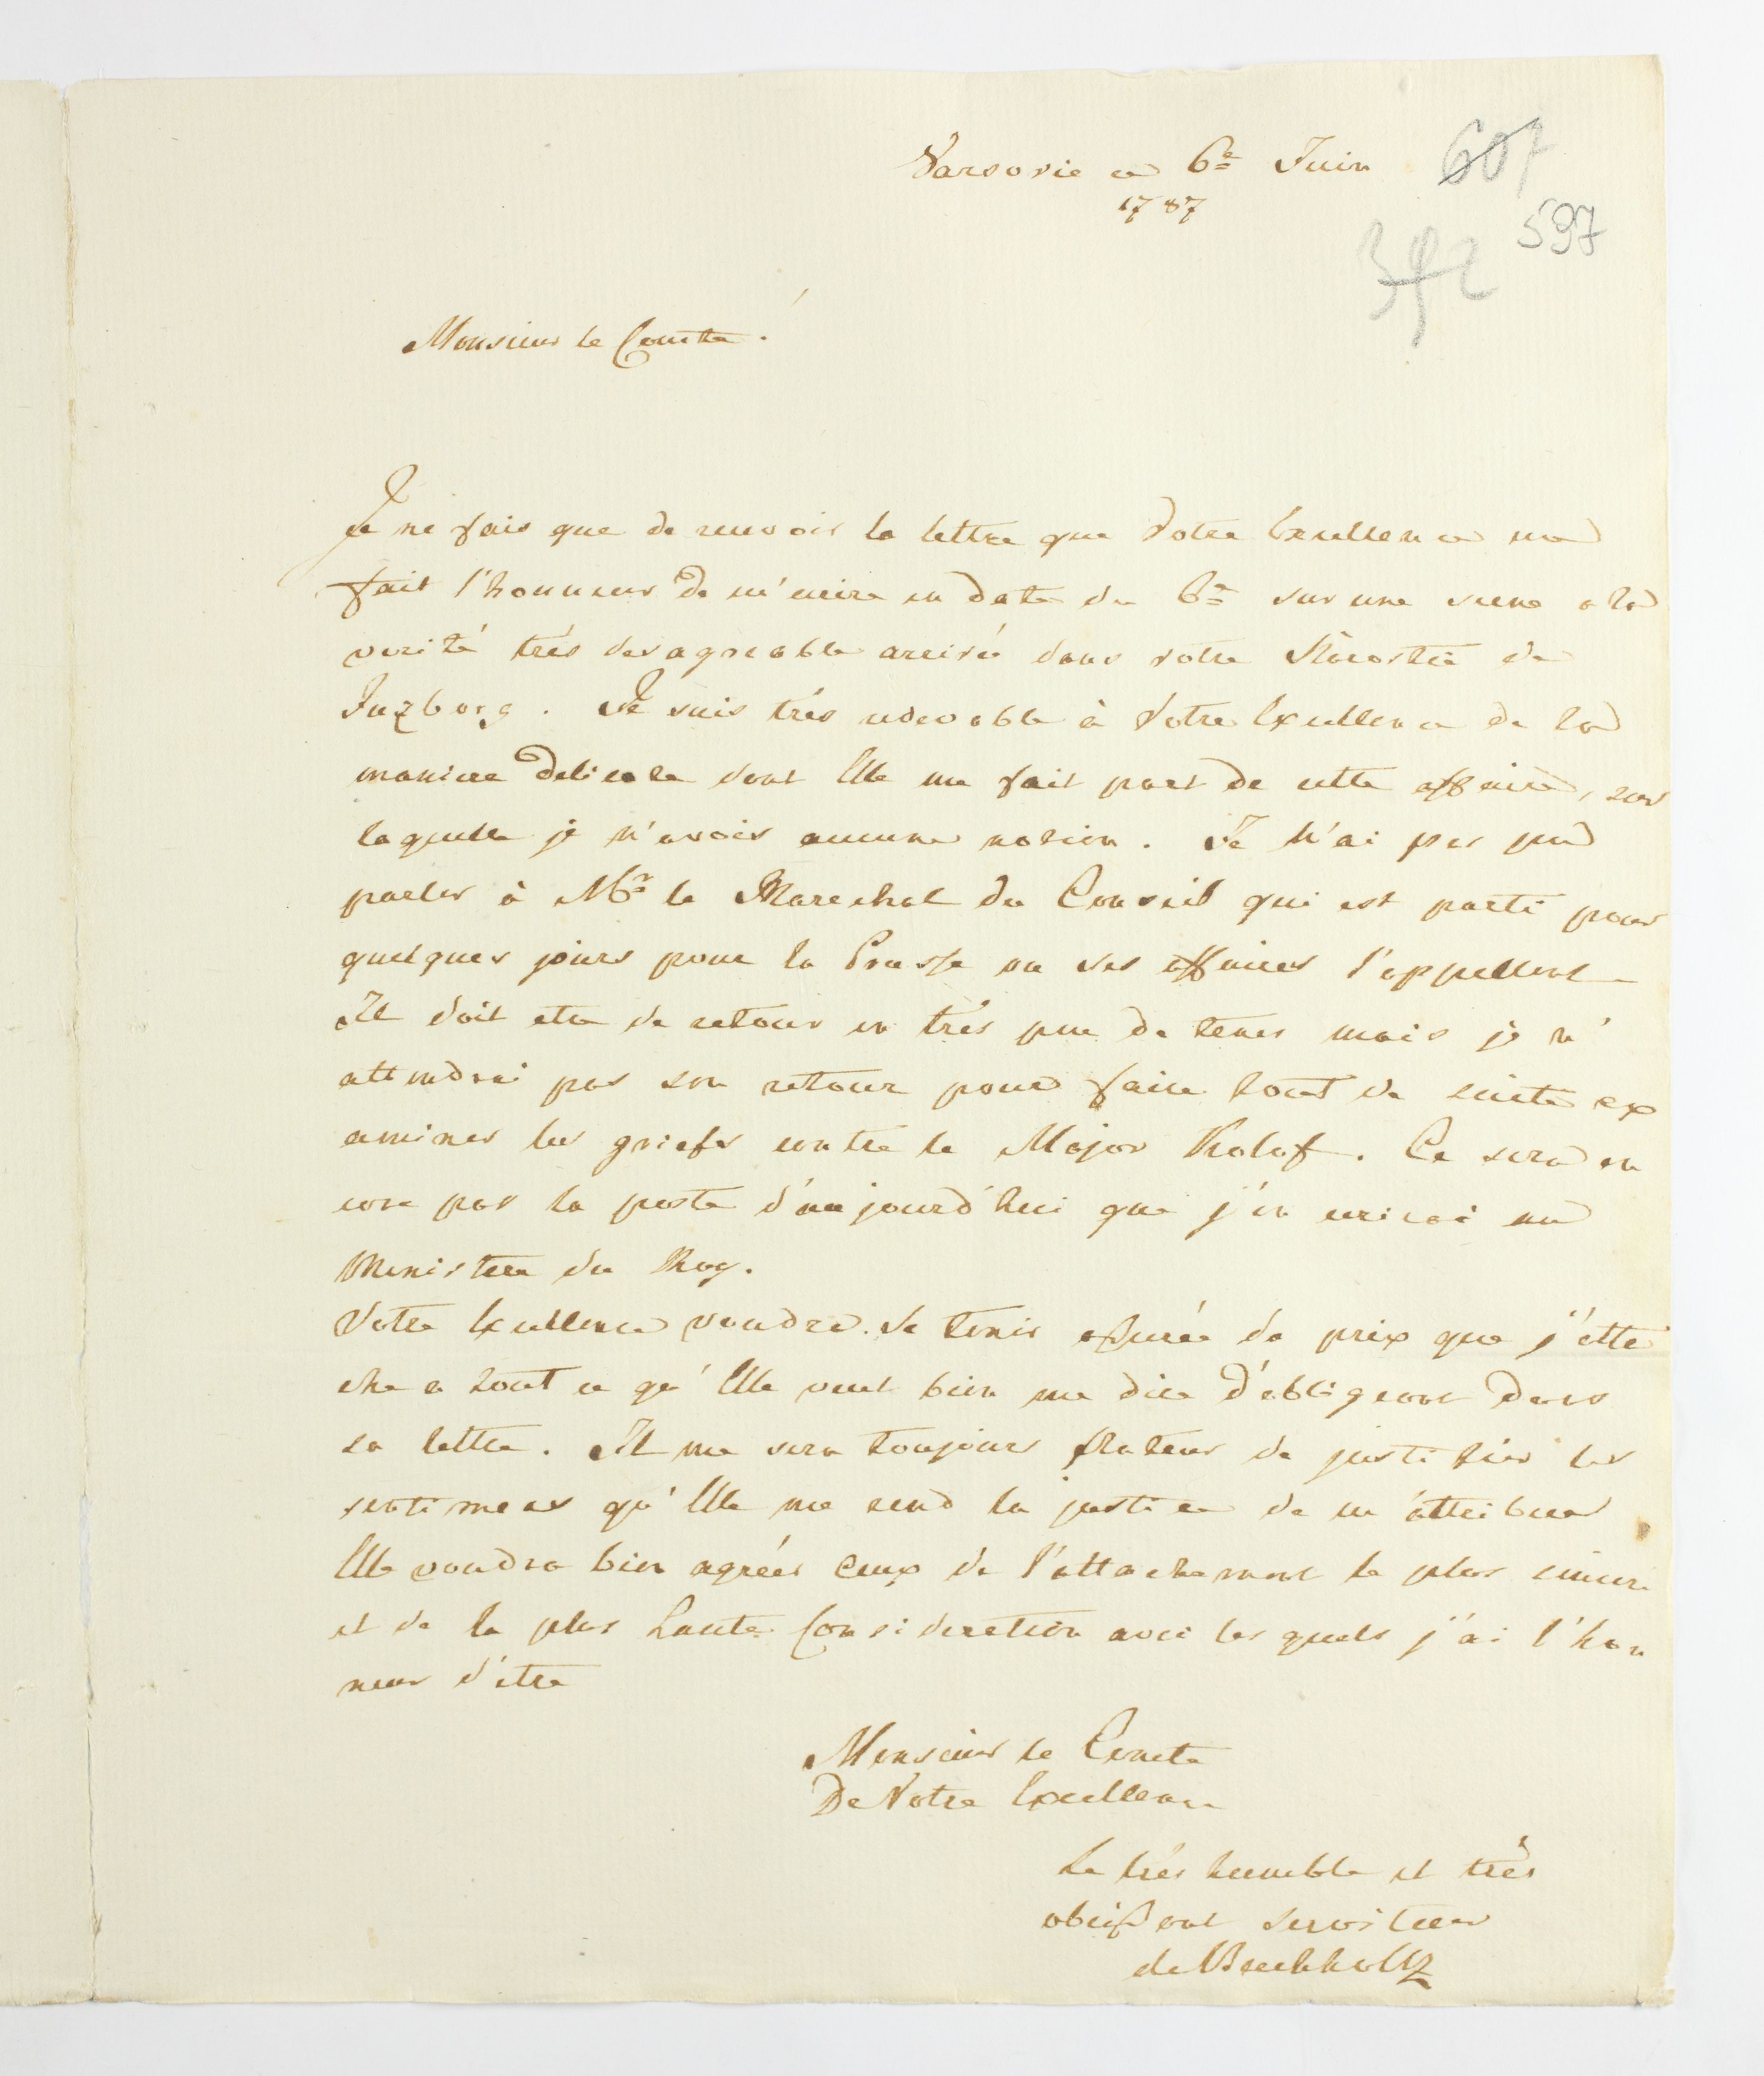 Varsovie ce 6e Juin
1787
607
597
392
Monsieur le Comte!
Je ne fais que de recevoir la lettre que Votre Excellence me
fait l'honneur de m'ecrire en date du 6e sur une scene a la
verité trés desagreable arrivée dans votre Starostie de
Inzborg. Je suis trés redevable à Votre Excellence de la
maniere delicate dont Elle me fait part de cette affaire, sur
laquelle je n'avois aucune notion. Je n'ai pas pu
parler à Mr le Marechal du Conseil qui est parti pour
quelques jours pour la Prusse ou ses affaires l'appellent
Il doit etre de retour en trés peu de tems mais je n'
attendrai pas son retour pour faire tout de suite ex
aminer les griefs contre le Major Kalof. Ce sera en
core par la poste d'aujourd'hui que j'en ecrirai au
Ministere du Roy.
Votre Excellence voudra se tenir assurée du prix que j'atta
che a tout ce qu'Elle veut bien me dire d'obligeant dans
sa lettre. Il me sera toujours flateur de justifier les
sentimens qu'Elle me rend la justice de m'attribuer
Elle voudra bien agréer ceux de l'attachement le plus sincere
et de la plus haute Consideration avec les quels j'ai l'hon
neur d'etre
Monsieur le Comte
De Votre Excellence
Le trés humble et trés
obeissant serviteur
de Buchholtz